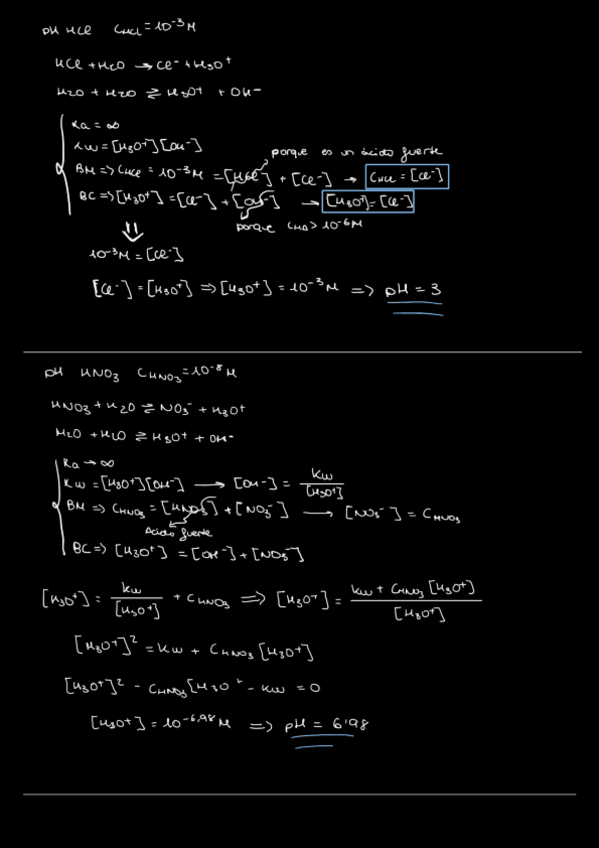 pH HCl C_HCl = 10⁻³ M
HCl + H2O → Cl⁻ + H3O⁺
H2O + H2O ⇌ H3O⁺ + OH⁻
Ka = ∞
Kw = [H3O⁺][OH⁻]
porque es un ácido fuerte
BM => C_HCl = 10⁻³ M = [HCl] + [Cl⁻] → C_HCl = [Cl⁻]
BC => [H3O⁺] = [Cl⁻] + [OH⁻] → [H3O⁺] = [Cl⁻]
porque C_HA > 10⁻⁶ M
10⁻³ M = [Cl⁻]
[Cl⁻] = [H3O⁺] => [H3O⁺] = 10⁻³ M => pH = 3
pH HNO3 C_HNO3 = 10⁻⁸ M
HNO3 + H2O ⇌ NO3⁻ + H3O⁺
H2O + H2O ⇌ H3O⁺ + OH⁻
Ka → ∞
Kw = [H3O⁺][OH⁻] → [OH⁻] = Kw / [H3O⁺]
BM => C_HNO3 = [HNO3] + [NO3⁻] → [NO3⁻] = C_HNO3
Ácido fuerte
BC => [H3O⁺] = [OH⁻] + [NO3⁻]
[H3O⁺] = Kw / [H3O⁺] + C_HNO3 => [H3O⁺] = Kw + C_HNO3 [H3O⁺] / [H3O⁺]
[H3O⁺]² = Kw + C_HNO3 [H3O⁺]
[H3O⁺]² - C_HNO3 [H3O⁺ - Kw = 0
[H3O⁺] = 10⁻⁶'⁹⁸ M => pH = 6'98